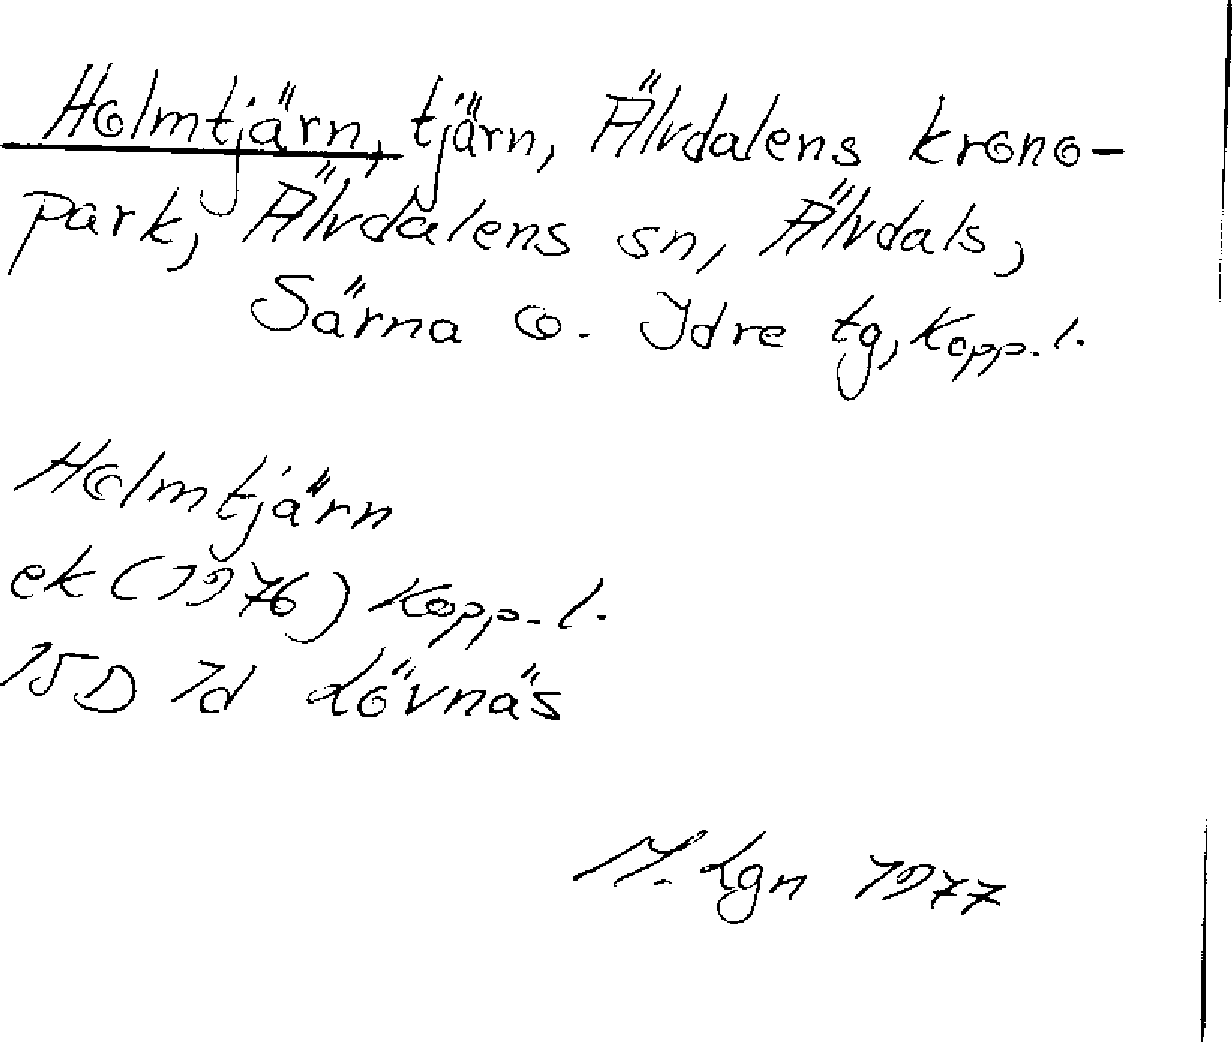 Holmtjärn, tjärn, Älvdalens krono-
park, Älvdalens sn, Älvdals,
Särna o. Idre tg, Kopp. l.
Holmtjärn
ek (1976) Kopp. l.
15D 7d Lövnäs
M. Lgn 1977